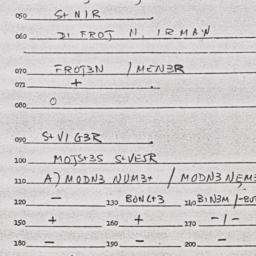 050 S+NIR
060 DI FROT N. IRMAN
070 FROT3N / MEN3R
071 +
080 O
090 S+VIG3R
100 MOJS+3S S+VESR
110 A) MODN3 NUM3+ / MODN3 NEM3
120 - 130 BONC+3 140 BIN3M /-BUT
150 + 160 + 170 -/-
180 - 190 - 200 -